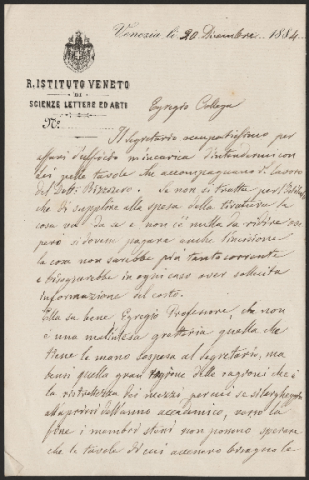 Venezia li 20 Dicembre 1884.
R. ISTITUTO VENETO
DI
SCIENZE LETTERE ED ARTI
N.º
Egregio Collega
Il Segretario occupatissimo per
affari d'ufficio m'incarica d'intendermi con
Lei pelle tavole che accompagnano il lavoro
del Dott. Bizzaro. Se non si tratta per l'Istituto
che di supplire alla spesa della tiratura la
cosa va da se e non c'è nulla da ridire ove
però si dovesse pagare anche l'incisione
la cosa non sarebbe più tanto corrente
e bisognerebbe in ogni caso aver sollecita
informazione sul costo.
Ella sa bene Egregio Professore, che non
è una malintesa grettezza quella che
tiene la mano sospesa al Segretario, ma
bensì quella gran ragione delle ragioni che è
la ristrettezza dei mezzi per cui se si largheggia
nei primi dell'anno accademico, verso la
fine i membri stessi non possono sperare
che le tavole di cui avessero bisogno le